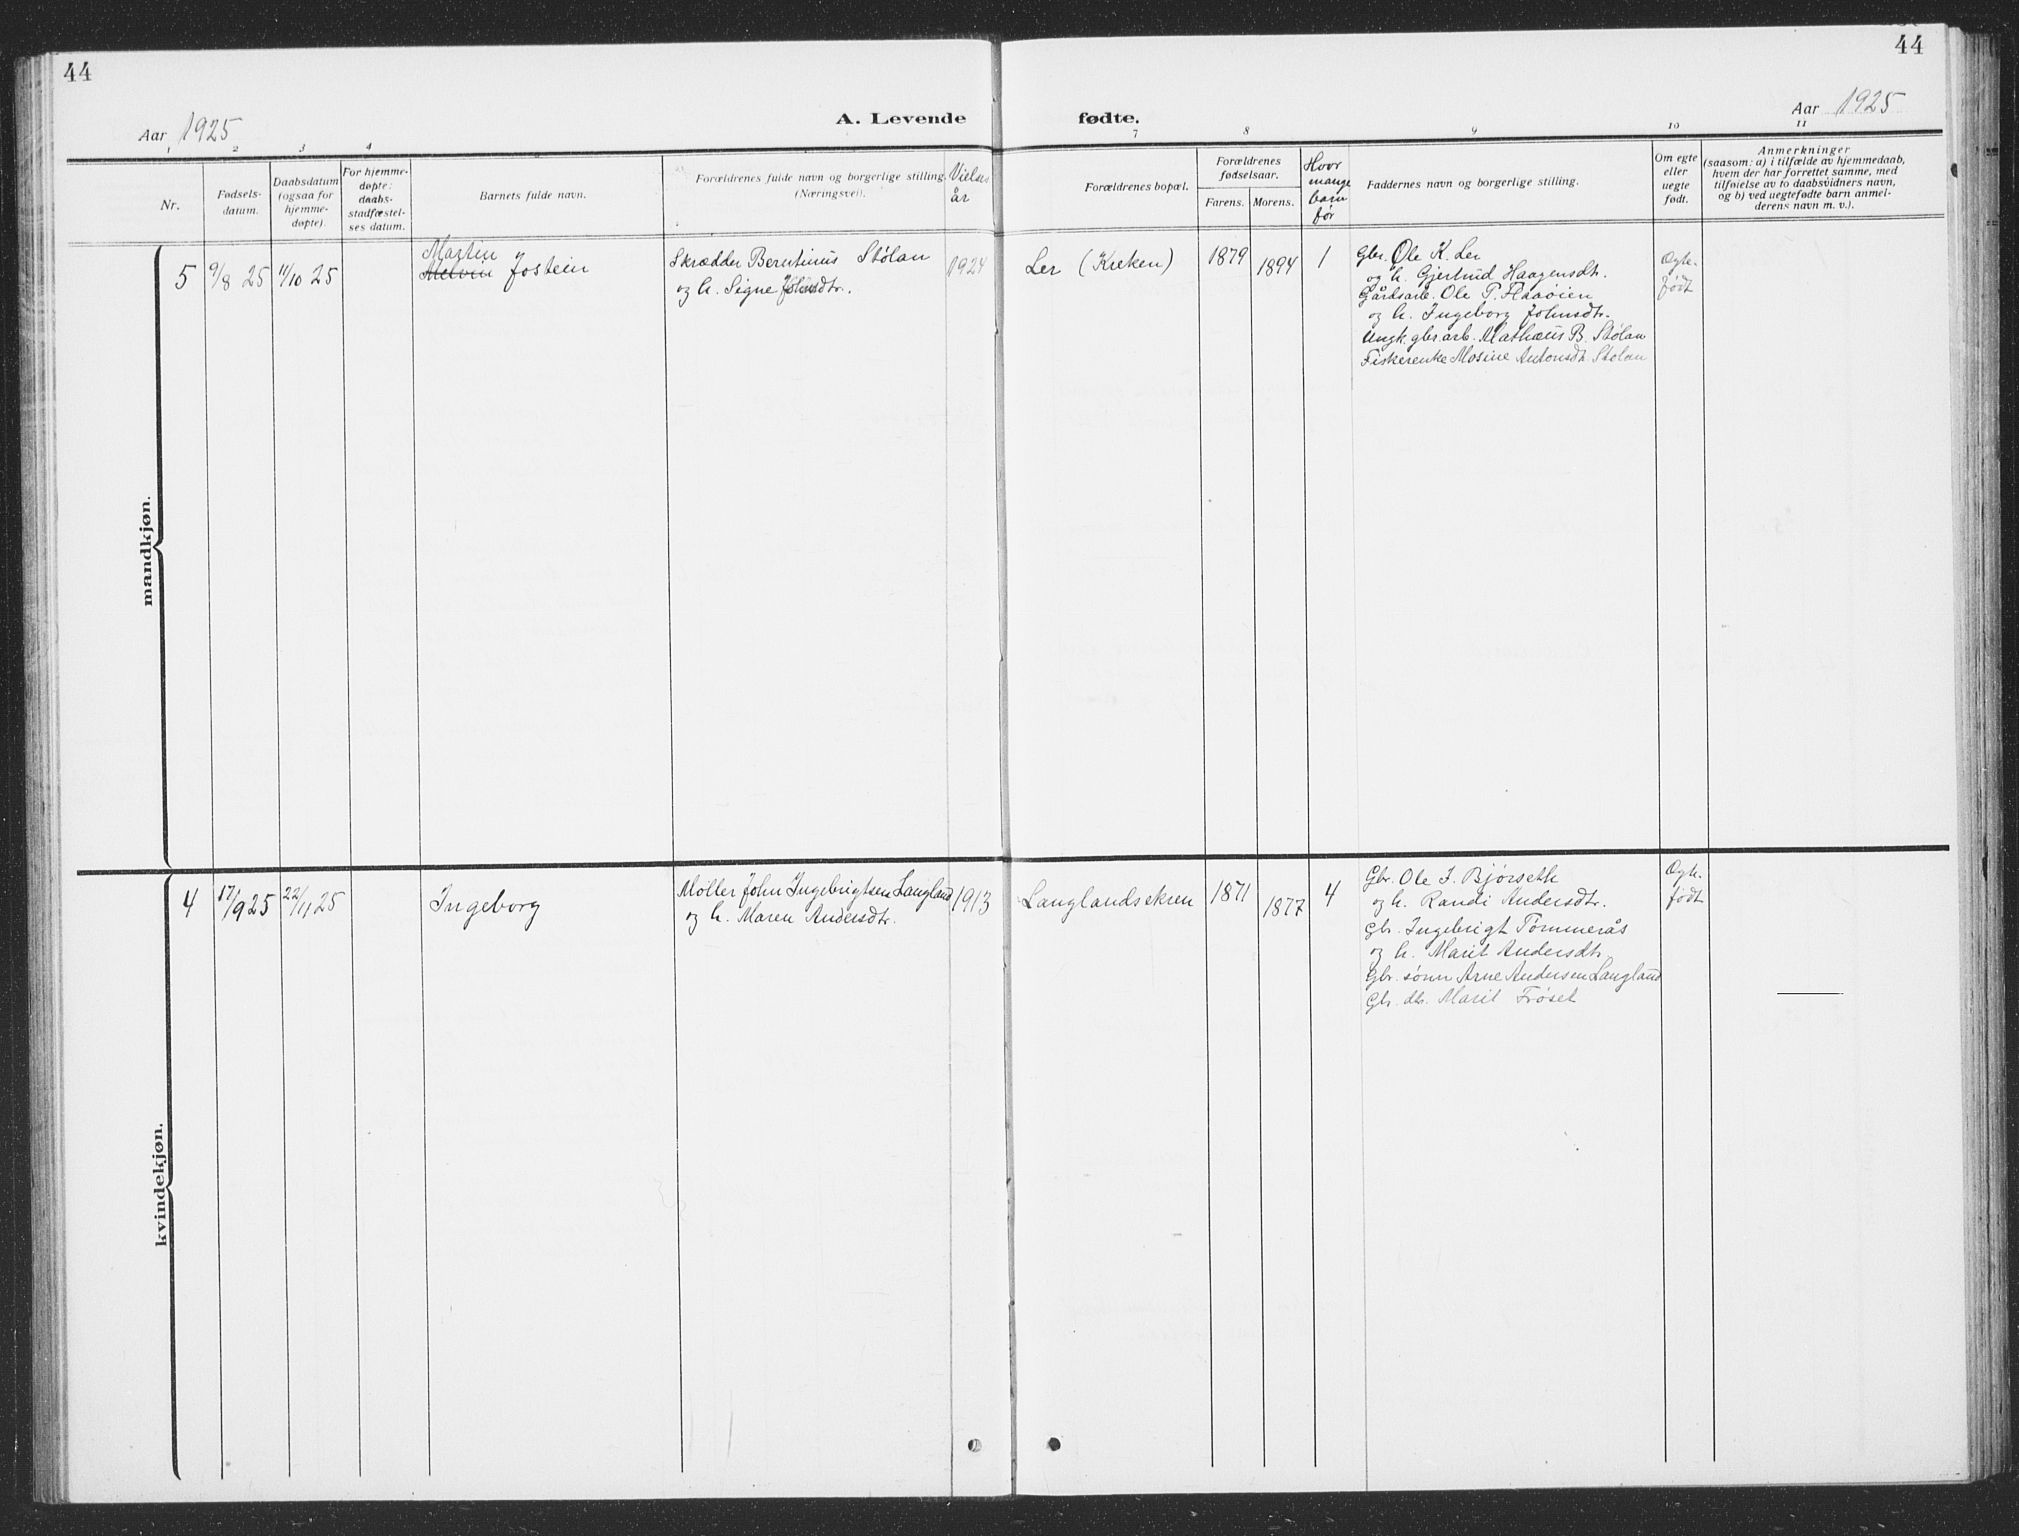 44
44
Aar 1925
A. Levende fødte.
Aar 1925
1 2 3 4 7 8 9 10 11
Nr.
Fødsels-
datum.
Daabsdatum
(ogsaa for
hjemme-
døpte).
For hjemme-
døpte:
daabs-
stadfæstel-
ses datum.
Barnets fulde navn.
Forældrenes fulde navn og borgerlige stilling.
(Næringsvei).
Vielses
år
Forældrenes bopæl.
Forældrenes
fødselsaar.
Farens. Morens.
Hvor
mange
barn
før
Faddernes navn og borgerlige stilling.
Om egte
eller
uegte
født.
Anmerkninger
(saasom: a) i tilfælde av hjemmedaab,
hvem der har forrettet samme, med
tilføielse av to daabsvidners navn,
og b) ved uegtefødte barn anmel-
derens navn m. v.).
mandkjøn.
5 9/8 25 11/10 25
Martin
Melvin Jostein
Skrædder Berntinus Stølan
og h. Signe Johnsdtr.
1924
Ler (Kreken)
1879 1894 1
Gbr. Ole K. Ler
og h. Gjertrud Haagensdt.
Gårdsarb. Ole P. Haaøien
og h. Ingeborg Johnsdtr.
Ungk. gbr. arb. Mathæus B. Stølan
Fiskerenke Mosine Antonsdt. Stølan
Ægte-
født
kvindekjøn.
4 17/9 25 22/11 25
Ingeborg
Møller John Ingebrigtsen Langland
og h. Maren Andersdtr.
1913
Langlandsekren
1871 1877 4
Gbr. Ole J. Bjørseth
og h. Randi Andersdtr.
Gbr. Ingebrigt Tømmerås
og h. Marit Andersdtr.
Gbr. sønn Arne Andersen Langland
Gbr. dtr. Marit Frøset
Ægte-
født